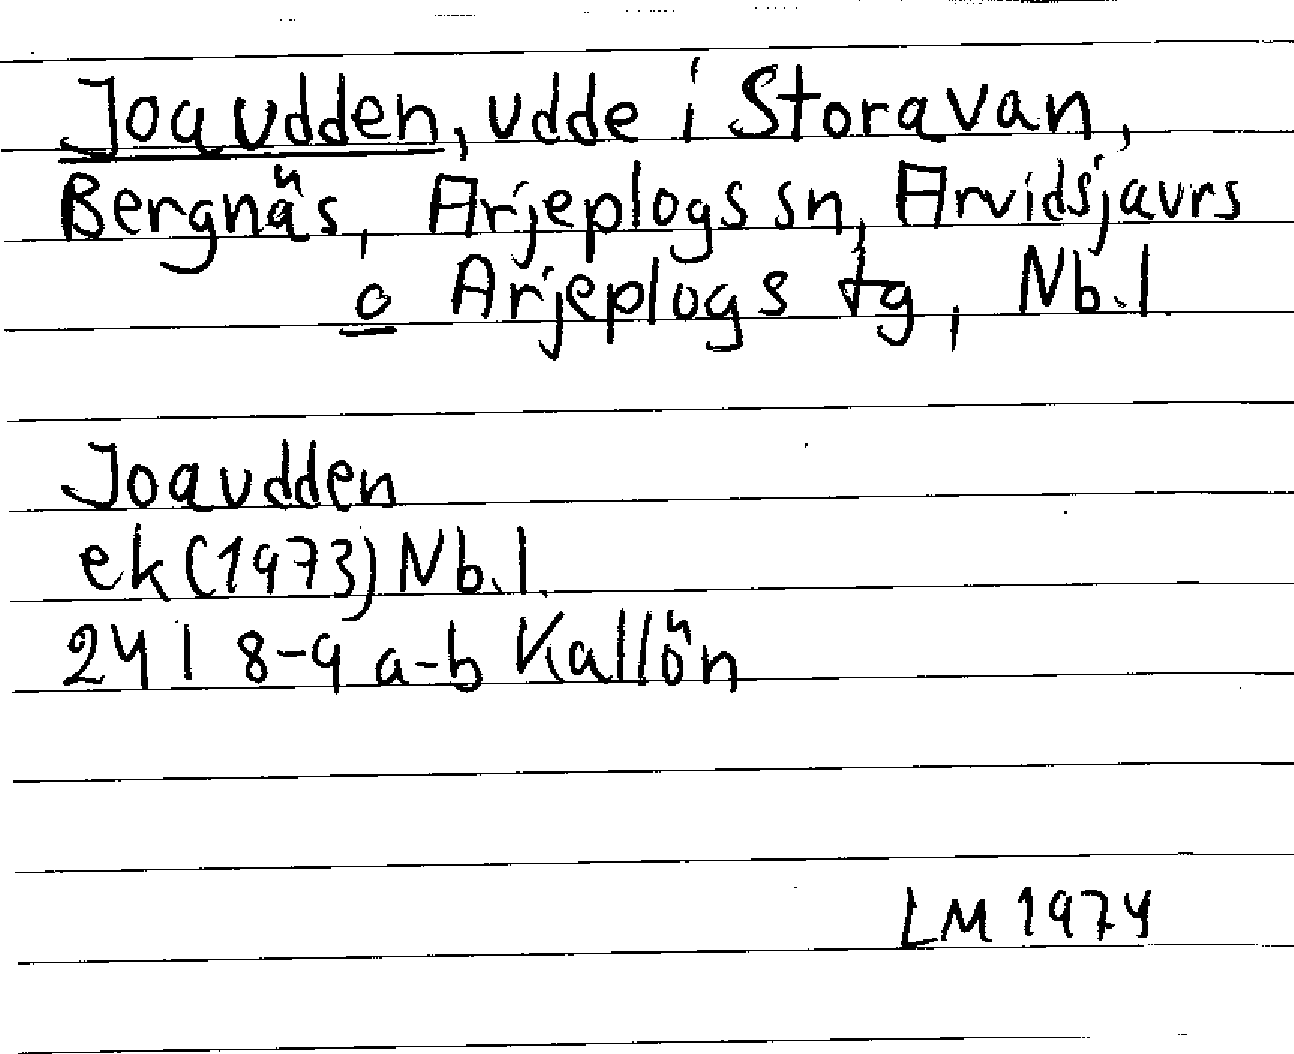 Joaudden, udde i Storavan,
Bergnäs, Arjeplogs sn, Arvidsjaurs
o Arjeplogs tg, Nb.l.
Joaudden
ek (1973) Nb.l.
24 I 8-9 a-b Kallön
LM 1974